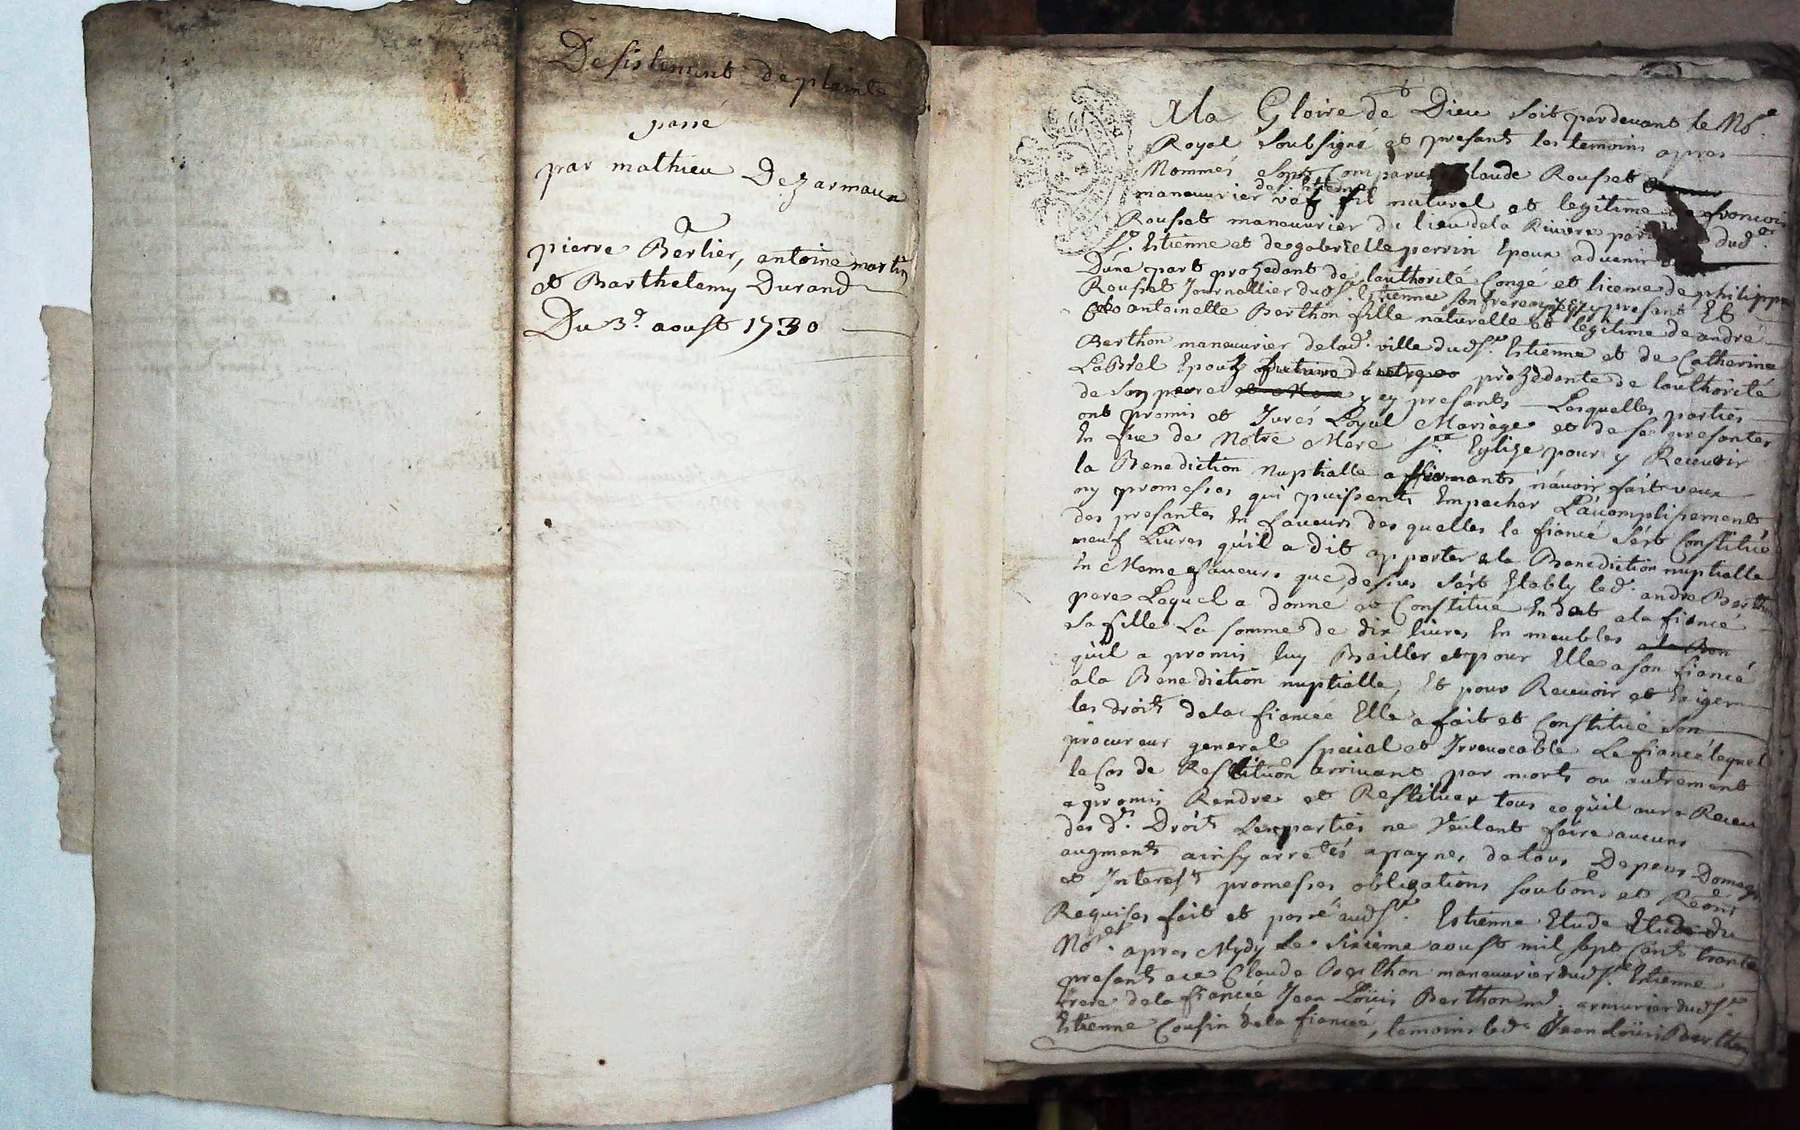 Desistement de plainte
passé
par mathieu Dezarmaux
a
pierre Berlier, antoine martin
et Barthelemy Durand
Du 3e. aoust 1730
A la Gloire de Dieu soit pardevant le No.re
Royal soubsigné et presents les temoins apres
Nommés Comparu Claude Rouset
manouvrier fil naturel et legitime de francois
Rouset manouvrier du lieu de la Riviere dud.
St. Estienne et de gabrielle perrin Epoux advenir
Dune part prozedant de lauthorité Congé et licence de philippe
Rouset Journallier dud St. Estienne son frere presant Et
antoinette Berthon fille naturelle et legitime de andré
Berthon manouvrier de lad. ville dud St. Estienne et de Catherine
Epouze future dautre prozedante de lauthorité
de son pere y presants Lesquelles parties
ont promis et Jurés Loyal Mariage et de se presanter
En fue de Notre Mere Ste. Eglize pour y Recevoir
la Benediction nuptialle affirmants n'avoir fait veux
ny promesses qui puissent Empecher L'acomplissement
des presantes En faveurs des quelles le fiancé s'est Constitué
neuf Livres qu'il a dit apporter a la Benediction nuptialle
En Meme faveurs que dessus s'est Etably led. andre Berthon
pere Lequel a donné et Constitue En dot a la fiancé
sa fille La somme de dix livres En meubles
quil a promis luy Bailler et pour Elle a son fiancé
a la Benediction nuptialle, Et pour Recevoir et Exiger
les droits de la fiancée Elle a fait et Constitué son
procureur general special et Irrevocable Le fiancé lequel
le Cas de Restituon arrivant par morts ou autrement
a promis Rendre et Restituer tous ce quil aura Receu
des ds. Droits Les parties ne Veulant faire aucuns
augments ainsy arretés a payne de tous Depens Domages
et Interest promesses obligations soubons et Reons
Requises fait et passé aud St. Estienne Etude du
Nore. apres Mydy Le sixieme aoust mil sept Cents trante
presants a ce Claude Berthon manouvrier dud St. Estienne
frere de la fiancée Jean Loüis Berthon md. armurier dud St.
Estienne Cousin de la fiancée, temoins led. Jean Loüis Berthon